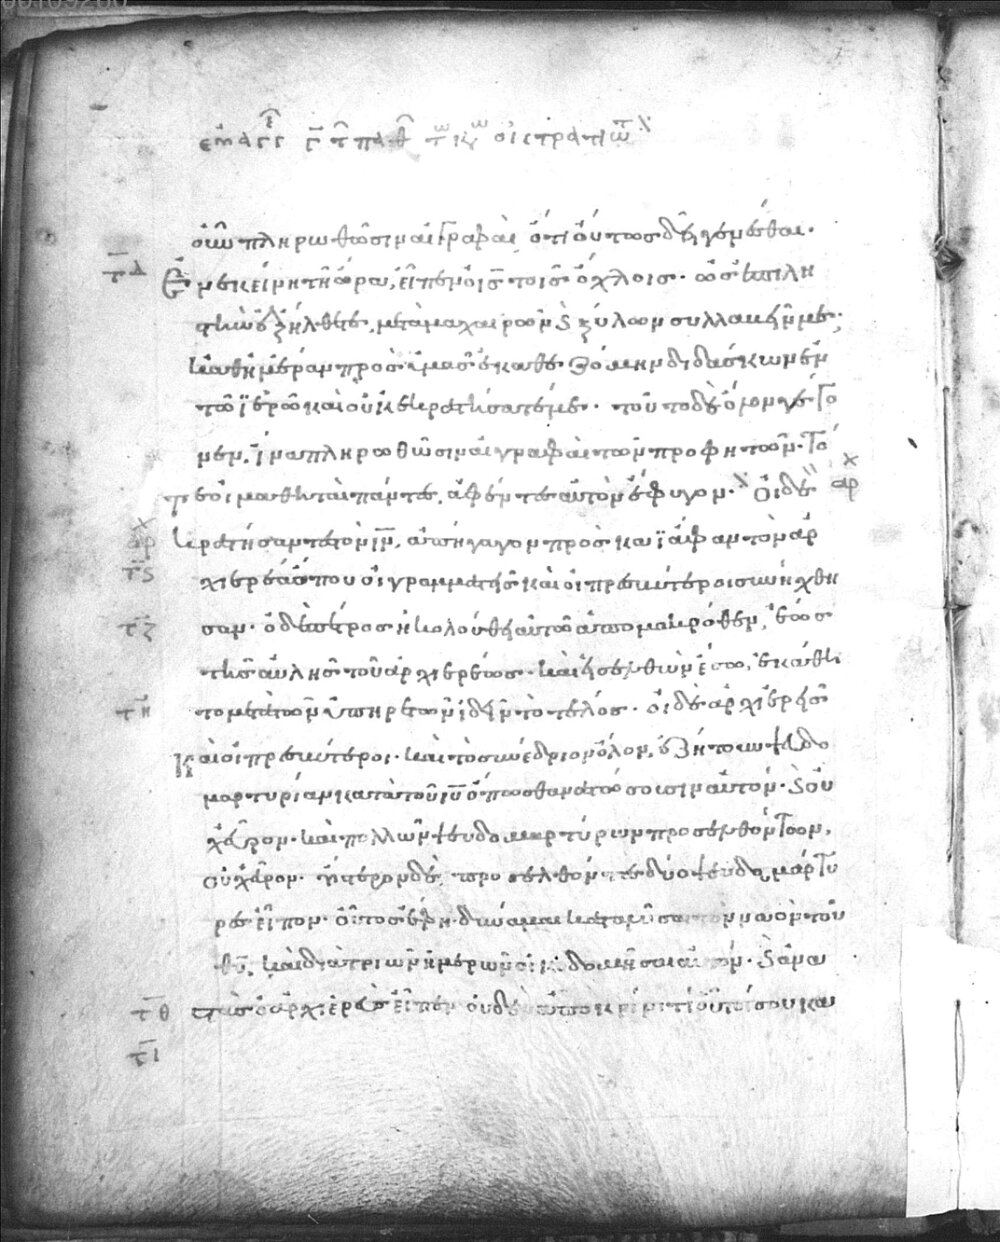 οὖν πληρωθῶσιν αἱ γραφαὶ ὅτι οὕτως δεῖ γενέσθαι·
τδ Ἐν ἐκείνῃ τῇ ὥρᾳ, εἶπεν ὁ ἰς τοῖς ὄχλοις· ὡς ἐπὶ λη
στὴν ἐξήλθετε, μετὰ μαχαιρῶν ϗ ξύλων συλλαβεῖν με·
καθημέραν πρὸς ὑμᾶς ἐκαθεζόμην διδάσκων ἐν
τῶ ἱερῶ καὶ οὐκ ἐκρατήσατέ με· τοῦτο δὲ ὅλον γέγο
νεν, ἵνα πληρωθῶσιν αἱ γραφαὶ τῶν προφητῶν· Τό
τε οἱ μαθηταὶ πάντες, ἀφέντες αὐτὸν ἔφυγον· Οἱ δὲ αρχ
αρχ κρατήσαντες τὸν ιν, ἀπήγαγον πρὸς καϊάφαν τὸν ἀρ
τϛ χιερέα ὅπου οἱ γραμματεῖς καὶ οἱ πρεσβύτεροι συνήχθη
τζ σαν· ὁ δὲ πέτρος ἠκολούθει αὐτῶ ἀπὸ μακρόθεν, ἕως
τῆς αὐλῆς τοῦ ἀρχιερέως· καὶ εἰσελθὼν ἔσω, ἐκάθη
τη το μετὰ τῶν ὑπηρετῶν ἰδεῖν τὸ τέλος· οἱ δὲ ἀρχιερεῖς
Καὶ οἱ πρεσβύτεροι· καὶ τὸ συνέδριον ὅλον, ἐζήτουν ψευδο
μαρτυρίαν κατὰ τοῦ ιυ ὅπως θανατώσωσιν αὐτόν· ϗ οὐ
χ εὗρον· καὶ πολλῶν ψευδομαρτύρων προσελθόντων,
οὐχ εὗρον· ὕστερον δὲ, προσελθόντες δύο ψευδομάρτυ
ρες εἶπον· οὗτος ἔφη· δύναμαι καταλῦσαι τὸν ναὸν τοῦ
θυ, καὶ διὰ τριῶν ἡμερῶν οἰκοδομῆσαι αὐτόν· ϗ ἀνα
τθ στὰς ὁ ἀρχιερεὺς εἶπεν οὐδὲν ἀποκρίνῃ τί οὗτοί σου κα
τι